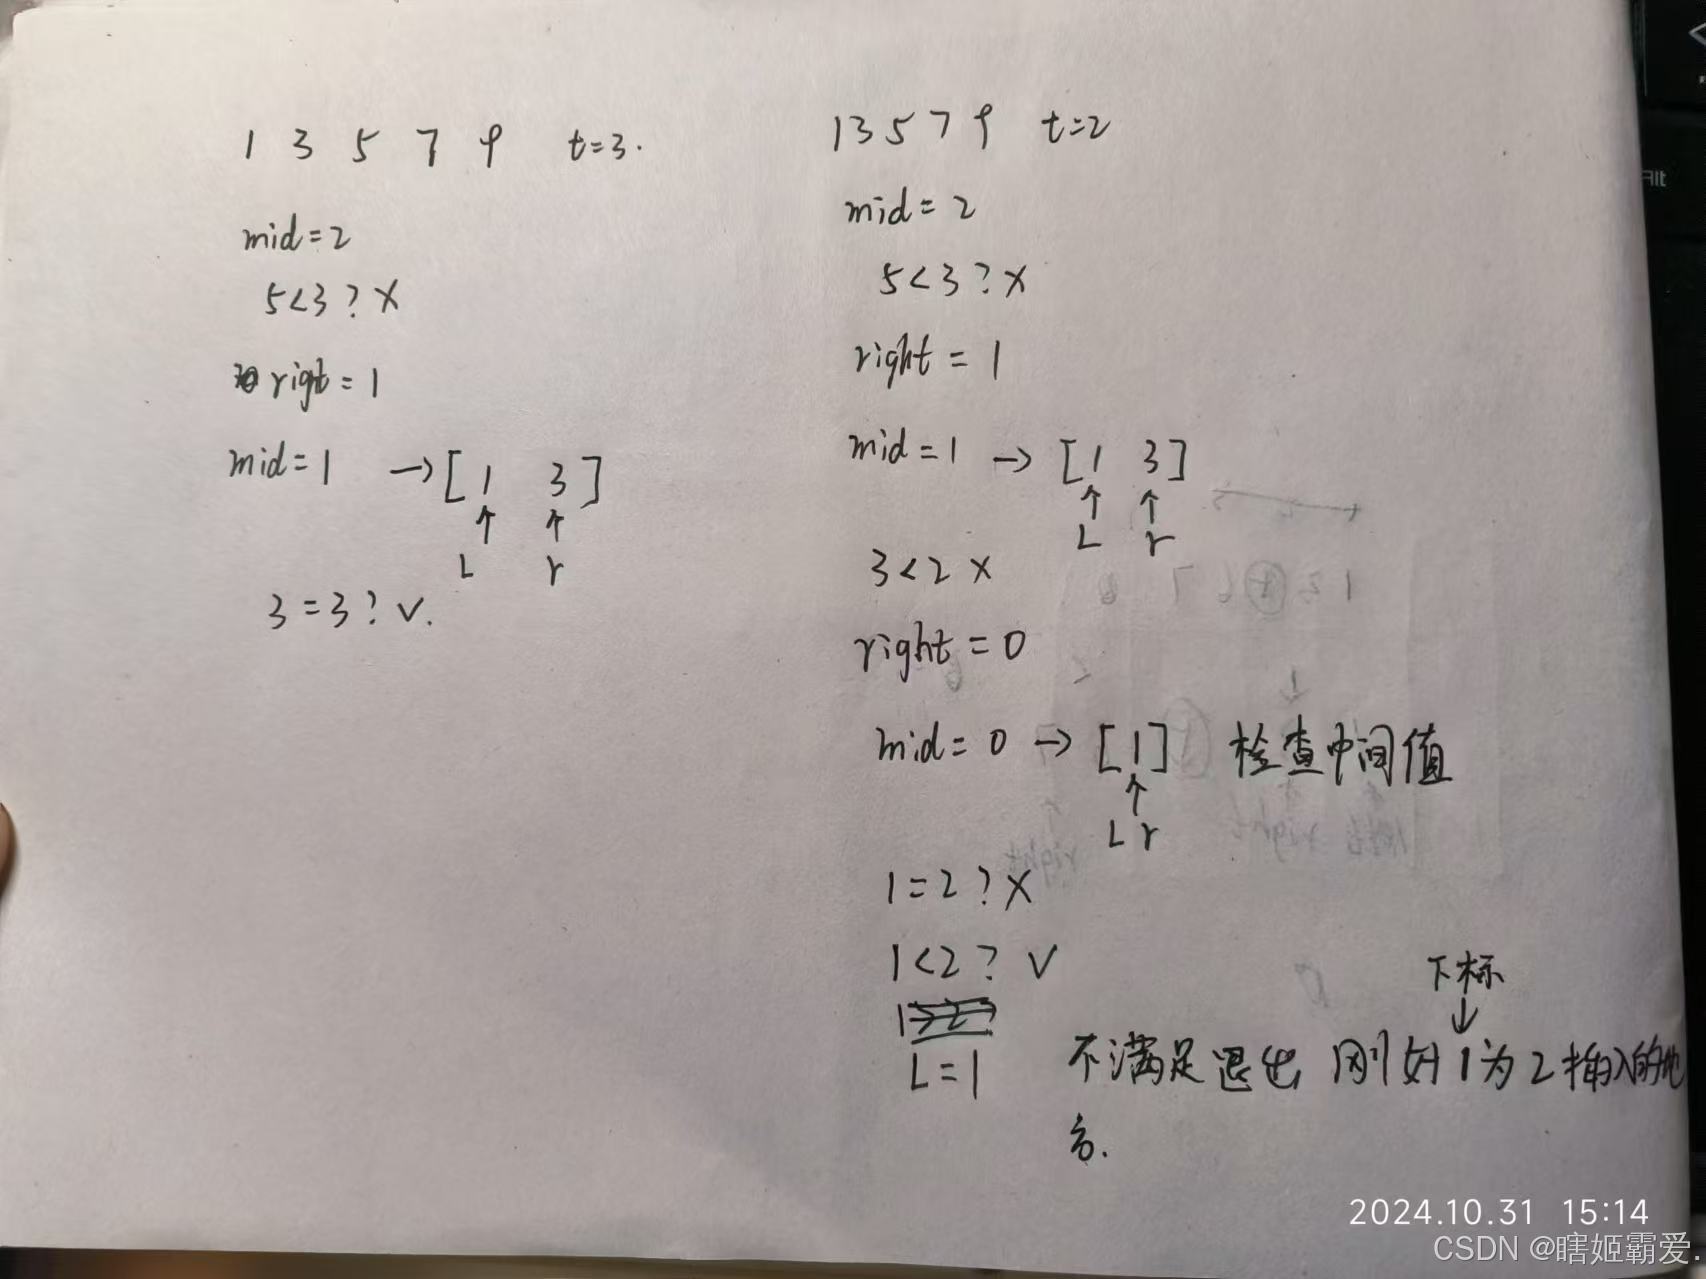 1 3 5 7 9 t=3.
mid=2
5<3?X
right=1
mid=1 →[1 3]
↑ ↑
L r
3=3?√.
13579 t=2
mid=2
5<3?X
right=1
mid=1 →[1 3]
↑ ↑
L r
3<2 X
right=0
mid=0 →[1] 检查中间值
↑
L r
1=2?X
1<2? √
L=1
下标
↓
不满足退出 刚好1为2插入的地
方.
Alt
2024.10.31 15:14
CSDN @瞎姬霸爱.